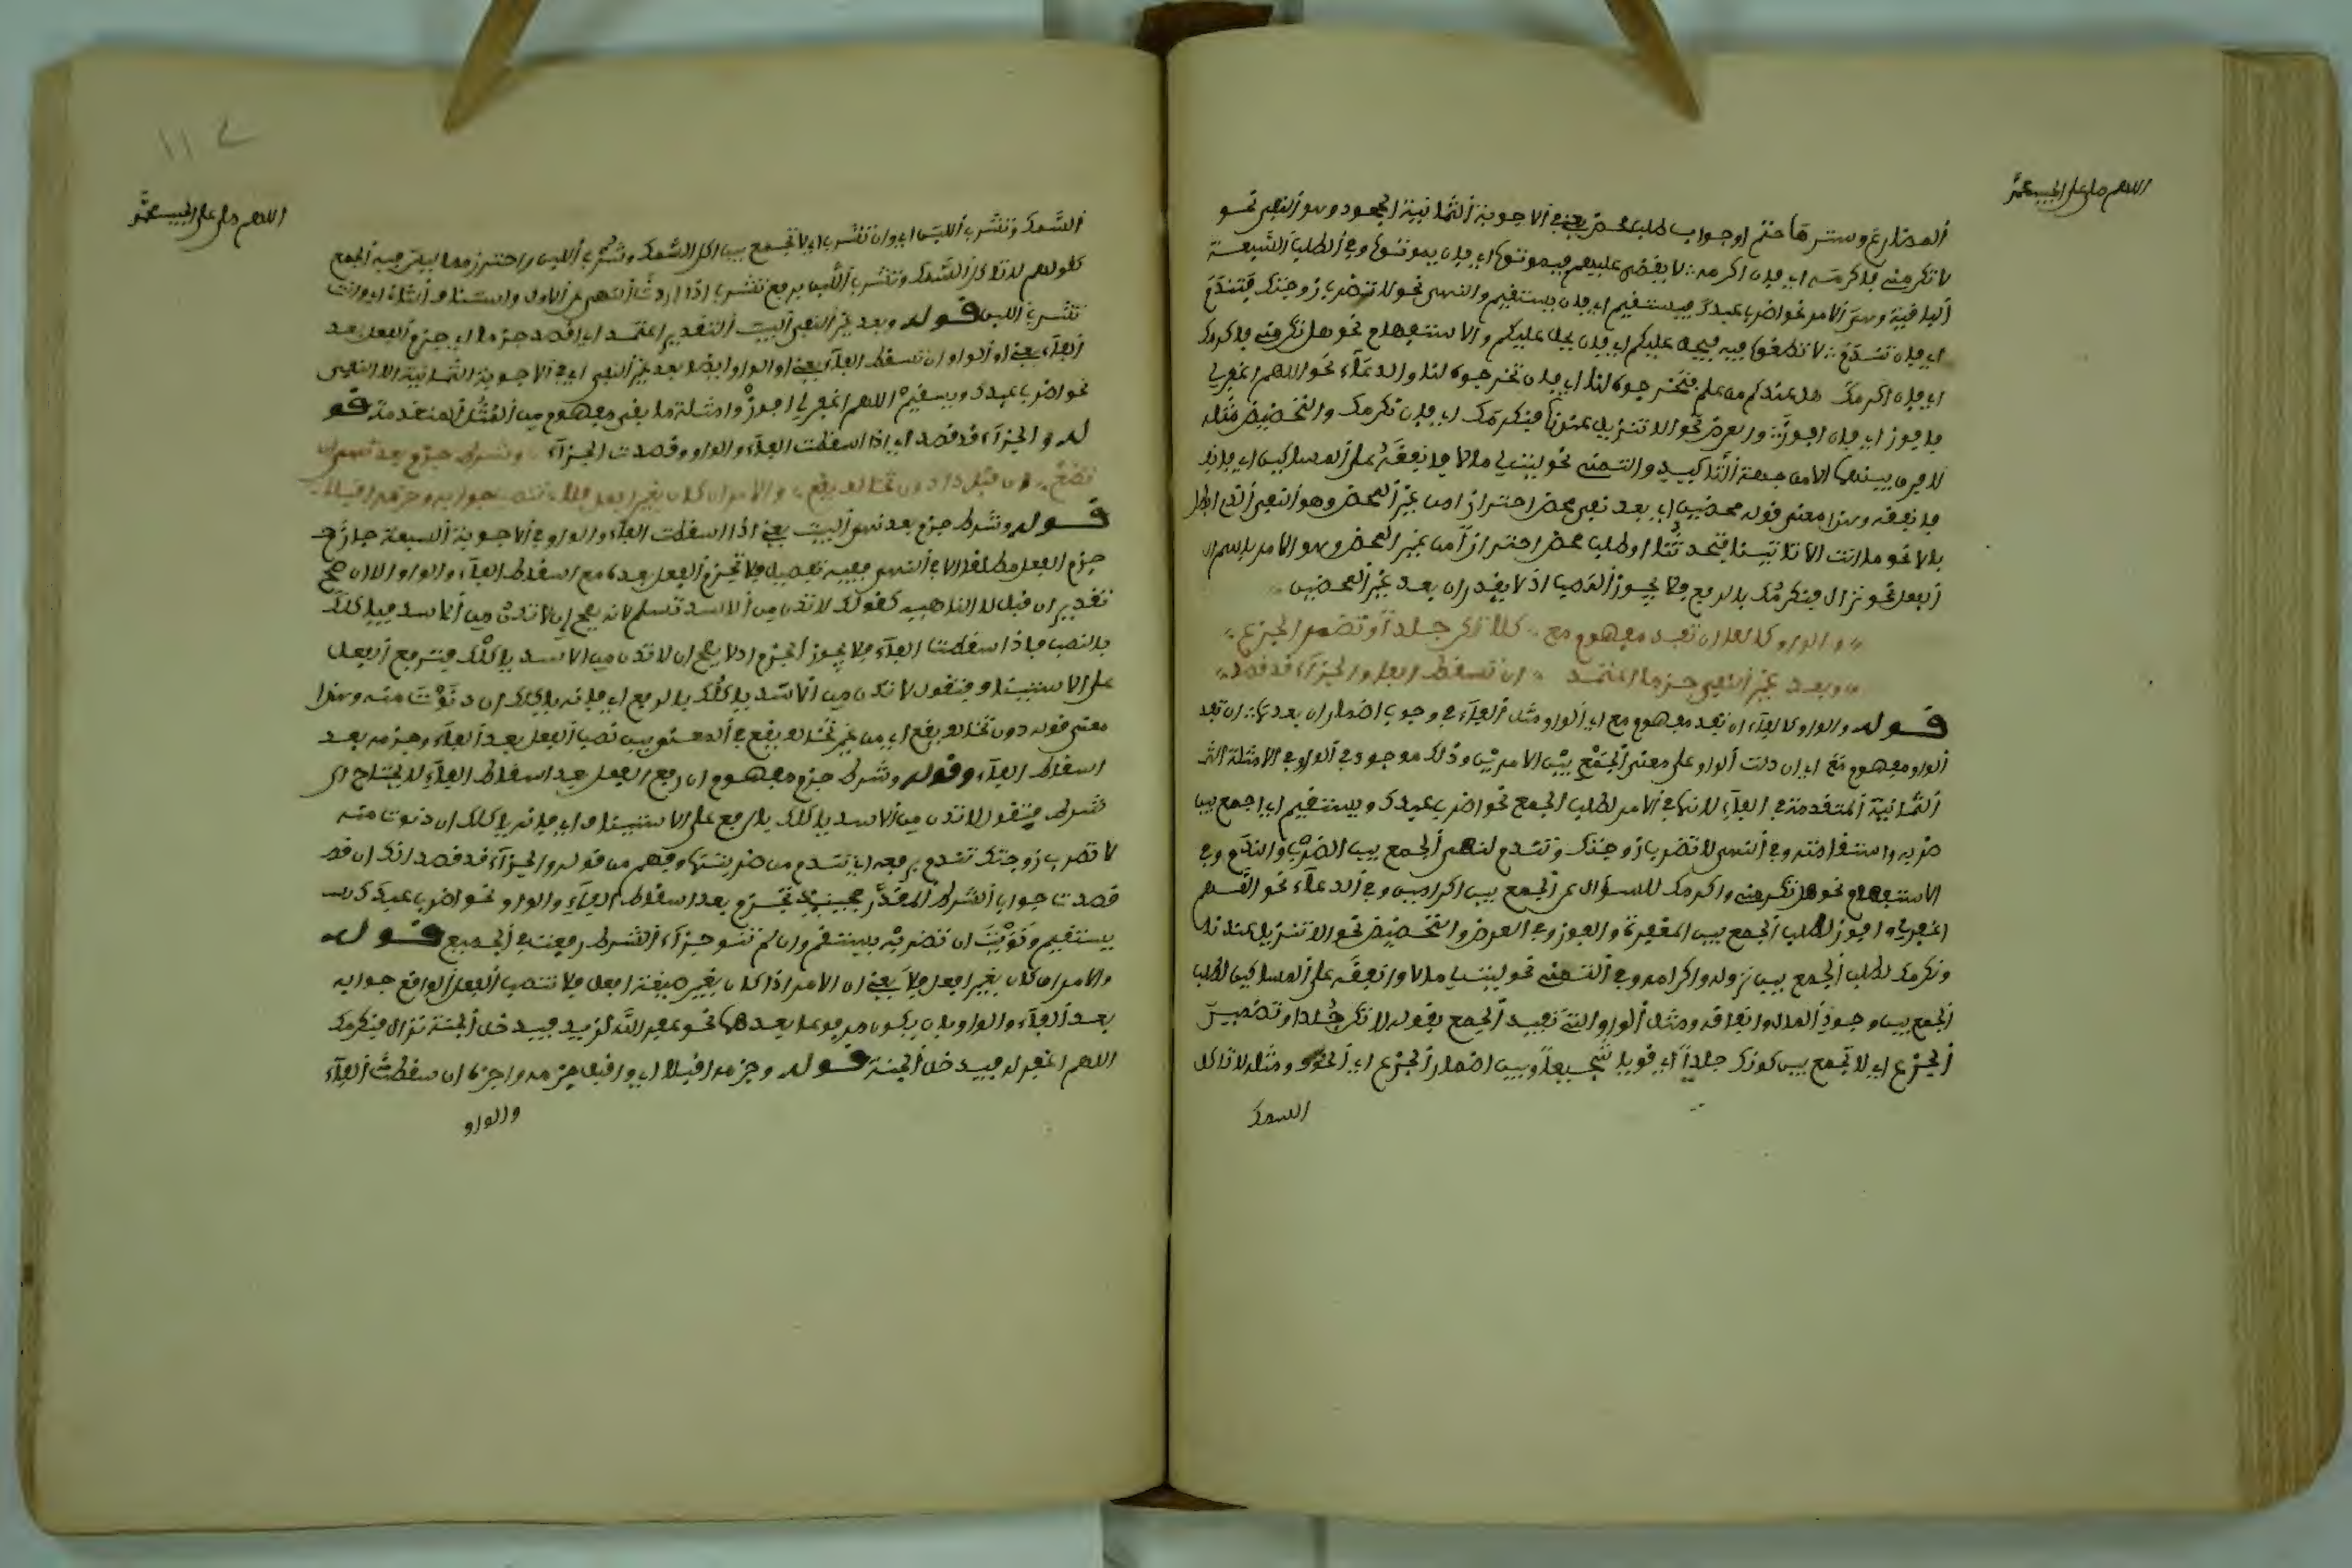 اللهم صل على الحبيب محمد
المضارع وسترها حتم او جواب طلب محض يعني في الاجوبة الثمانية الجحود وهو النفي نحو
لا تكرمني فاكرمه اي فان اكرمه لا يقضى عليهم فيموتوا اي فان يموتوا وفي الطلب السبعة
الباقية وهي الامر نحو اضرب عبدك فيستقيم اي فان يستقيم والنهي نحو لا تضرب زوجتك فتندم
اي فان تندم لا تطغوا فيه فيحل عليكم اي فان يحل عليكم والاستفهام نحو هل تكرمني فاكرمك
اي فان اكرمك هل عندكم من علم فتخرجوه لنا اي فان تخرجوه لنا والدعاء نحو اللهم اغفر لي
فافوز اي فان افوز والعرض نحو الا تنزل عندنا فنكرمك اي فان نكرمك والتحضيض مثله
لا فرق بينهما الا من جهة التاكيد والتمني نحو ليت لي مالا فانفقه على المساكين اي فان
فانفقه وهذا معنى قوله محضين اي بعد نفي محض احترازا من غير المحض وهو النفي الذي ابطل
بالا نحو ما انت الا تاتينا فتحدثنا او طلب محض احترازا من غير المحض وهو الامر باسم
الفعل نحو نزال فنكرمك بالرفع فلا يجوز النصب اذ لا يقدر ان بعد غير المحضين
والواو كالفا ان تفد مفهوم مع كلا تكن جلدا وتضمر الجزع
وبعد غير النفي جزما اعتمد ان تسقط الفا والجزاء قد قصد
قوله والواو كالفاء ان تفد مفهوم مع اي الواو مثل الفاء في وجوب اضمار ان بعدها ان تفد
الواو مفهوم مع اي ان دلت الواو على معنى الجمع بين الامرين وذلك موجود في الواو في الامثلة
الثمانية المتقدمة في الفاء لانها في الامر لطلب الجمع نحو اضرب عبدك ويستقيم اي اجمع بين
ضربه واستقامته وفي النهي لا تضرب زوجتك وتندم لنهي الجمع بين الضرب والندم وفي
الاستفهام نحو هل تكرمني واكرمك للسؤال عن الجمع بين اكرامين وفي الدعاء نحو اللهم
اغفر لي وافوز لطلب الجمع بين المغفرة والفوز وفي العرض والتحضيض نحو الا تنزل عندنا
ونكرمك لطلب الجمع بين نزوله واكرامه وفي التمني نحو ليت لي مالا وانفقه على المساكين لطلب
الجمع بين وجود المال وانفاقه ومثل الواو التي تفيد الجمع بقوله لا تكن جلدا وتضمر
الجزع اي لا تجمع بين كونك جلدا اي قويا شجيعا وبين اضمار الجزع اي الخوف ومثله لا تاكل
السمك
١١٢
اللهم صل على الحبيب محمد
السمك وتشرب اللبن اي وان تشرب اي لا تجمع بين اكل السمك وشرب اللبن واحترز مما ليس فيه الجمع
كقولهم لا تاكل السمك وتشرب اللبن برفع تشرب اذا اردت النهي عن الاول واستئناف الثاني اي وانت
تشرب اللبن قوله وبعد غير النفي البيت التقدير اعتمد اي اقصد جزما اي جزم الفعل بعد
الفاء يعني او الواو ان تسقط الفاء يعني او الواو ايضا بعد غير النفي اي في الاجوبة الثمانية الا النفي
نحو اضرب عبدك ويستقيم اللهم اغفر لي افوز وامثلة ما بقي مفهوم من المثل المتقدمة قو
له والجزاء قد قصد اي اذا اسقطت الفاء والواو وقصدت الجزاء وشرط جزم بعد نهي ان
تضع ان قبل لا دون تخالف يقع والامر ان كان بغير افعل فلا تنصب جوابه وجزمه اقبلا
قوله وشرط جزم بعد نهي البيت يعني اذا اسقطت الفاء والواو في الاجوبة السبعة جاز
جزم الفعل مطلقا الا في النهي ففيه تفصيل فلا تجزم الفعل بعده مع اسقاط الفاء والواو الا ان صح
تقدير ان قبل لا الناهية كقولك لا تدن من الاسد تسلم لانه يصح ان لا تدن من الاسد فياكلك
بالنصب فاذا اسقطت الفاء فلا يجوز الجزم اذ لا يصح ان لا تدن من الاسد ياكلك فترفع الفعل
على الاستيناف فتقول لا تدن من الاسد ياكلك بالرفع اي فانه ياكلك ان دنوت منه وهذا
معنى قوله دون تخالف يقع اي من غير تخالف يقع في المعنى بين نصب الفعل بعد الفاء وجزمه بعد
اسقاط الفاء وقوله وشرط جزم مفهوم ان رفع الفعل بعد اسقاط الفاء لا يحتاج الى
شرط فتقول لا تدن من الاسد ياكلك بالرفع على الاستيناف اي فانه ياكلك ان دنوت منه
لا تضرب زوجتك تندم برفعه اي تندم من ضربتها وفهم من قوله والجزاء قد قصد انك ان قد
قصدت جواب الشرط المقدر فحينئذ تجزم بعد اسقاط الفاء والواو نحو اضرب عبدك
يستقيم ونويت ان تضربه يستقم وان لم تنو جزاء الشرط رفعت في الجميع قوله
والامر ان كان بغير افعل فلا يعني ان الامر اذا كان بغير صيغة افعل فلا تنصب الفعل الواقع جوابه
بعد الفاء والواو بل يكون مرفوعا بعدهما نحو غفر الله لزيد فيدخل الجنة نزال فنكرمك
اللهم اغفر له فيدخل الجنة قوله وجزمه اقبلا اي واقبل جزمه واجزه ان سقطت الفاء
والواو